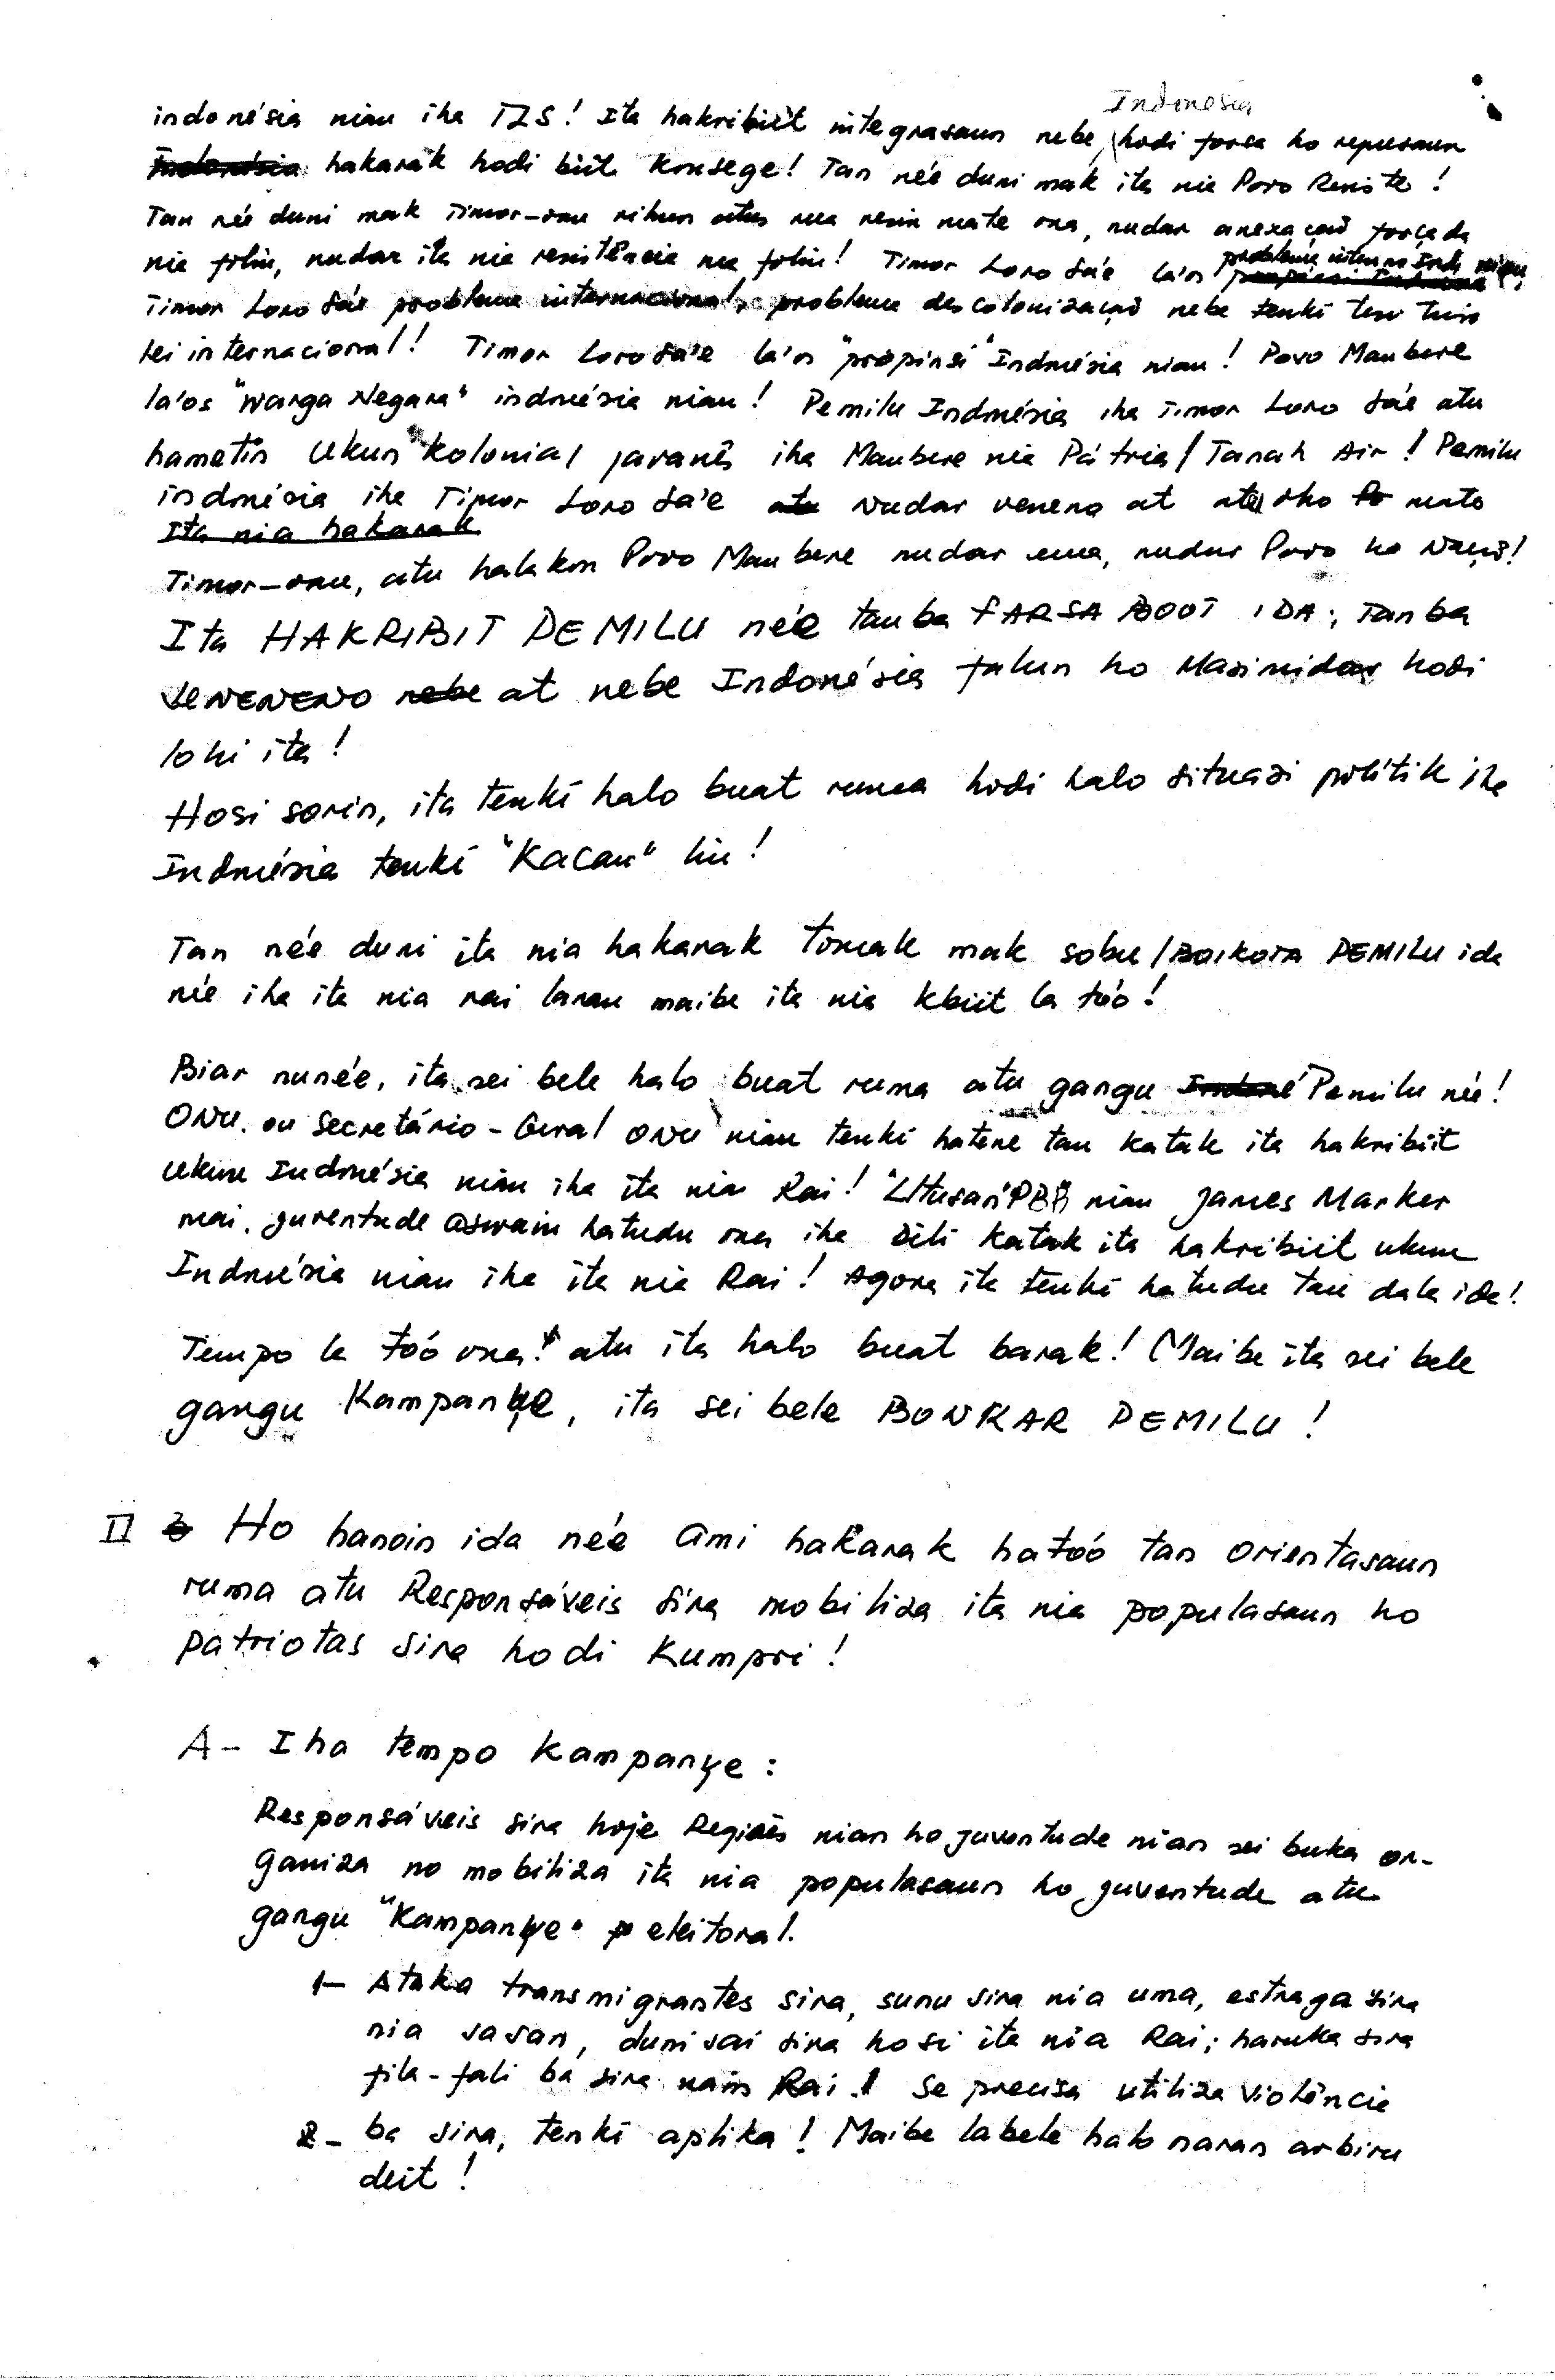 Indonesia
indonésia nian iha TLS! Ita hakribiit integrasaun nebe, hodi forsa ho repressaun
hakarak hodi biit konsege! Tan né'e duni mak ita nia Povo Resiste!
Tan né'e duni mak Timor-oan rihun atus rua resin mate ona, nudar anexação forçada
nia folin, nudar ita nia resistência nia folin! Timor Loro Sa'e la'os problema interno Ind. nian,
Timor Loro Sa'e problema internacional, problema descolonização nebe tenki tesi tuir
lei internacional! Timor Loro Sa'e la'os "propinsi" Indonésia nian! Povo Maubere
la'os "Warga Negara" indonésia nian! Pemilu Indonésia iha Timor Loro Sa'e atu
hametin Ukun kolonial javanês iha Maubere nia Pátria/Tanah Air! Pemilu
indonésia iha Timor Loro Sa'e nudar veneno at atu oho mate
Ita nia hakarak
Timor-oan, atu halakon Povo Maubere nudar ema, nudar Povo ho Nação!
Ita HAKRIBIT PEMILU né'e tanba FARSA BOOT IDA; Tanba
VENENENO at nebe Indonésia falun ho Masimidar hodi
lohi ita!
Hosi sorin, ita tenki halo buat ruma hodi halo situasi polítik iha
Indonésia tenki "Kacau" liu!
Tan né'e duni ita nia hakarak tomak mak sobu/BOIKOTA PEMILU ida
né'e iha ita nia rai laran maibe ita nia kbiit la to'o!
Biar nuné'e, ita sei bele halo buat ruma atu gangu Pemilu né'e!
ONU. ou Secretário-Geral ONU nian tenki hatene tan katak ita hakribiit
ukun Indonésia nian iha ita nia Rai! "Utusan" PBB nian James Marker
mai. Juventude Aswain hatudu ona iha Dili katak ita hakribiit ukun
Indonésia nian iha ita nia Rai! Agora ita tenki hatudu tan dala ida!
Tempo la to'o ona! atu ita halo buat barak! Maibe ita sei bele
gangu Kampanye, ita sei bele BONKAR PEMILU!
II Ho hanoin ida né'e Ami hakarak hato'o tan orientasaun
ruma atu Responsáveis sira mobiliza ita nia populasaun ho
patriotas sira hodi kumpri!
A- Iha tempo kampanye:
Responsáveis sira hoje Regiões nian ho juventude nian sei buka or-
ganiza no mobiliza ita nia populasaun ho juventude atu
gangu "Kampanye" eleitoral.
1- Ataka transmigrantes sira, sunu sira nia uma, estraga sira
nia sasan, duni sai sira hosi ita nia Rai; haruka sira
fila-fali ba sira nain Rai! Se precisa utiliza violência
2- ba sira, tenki aplika! Maibe labele halo naran arbiru
deit!